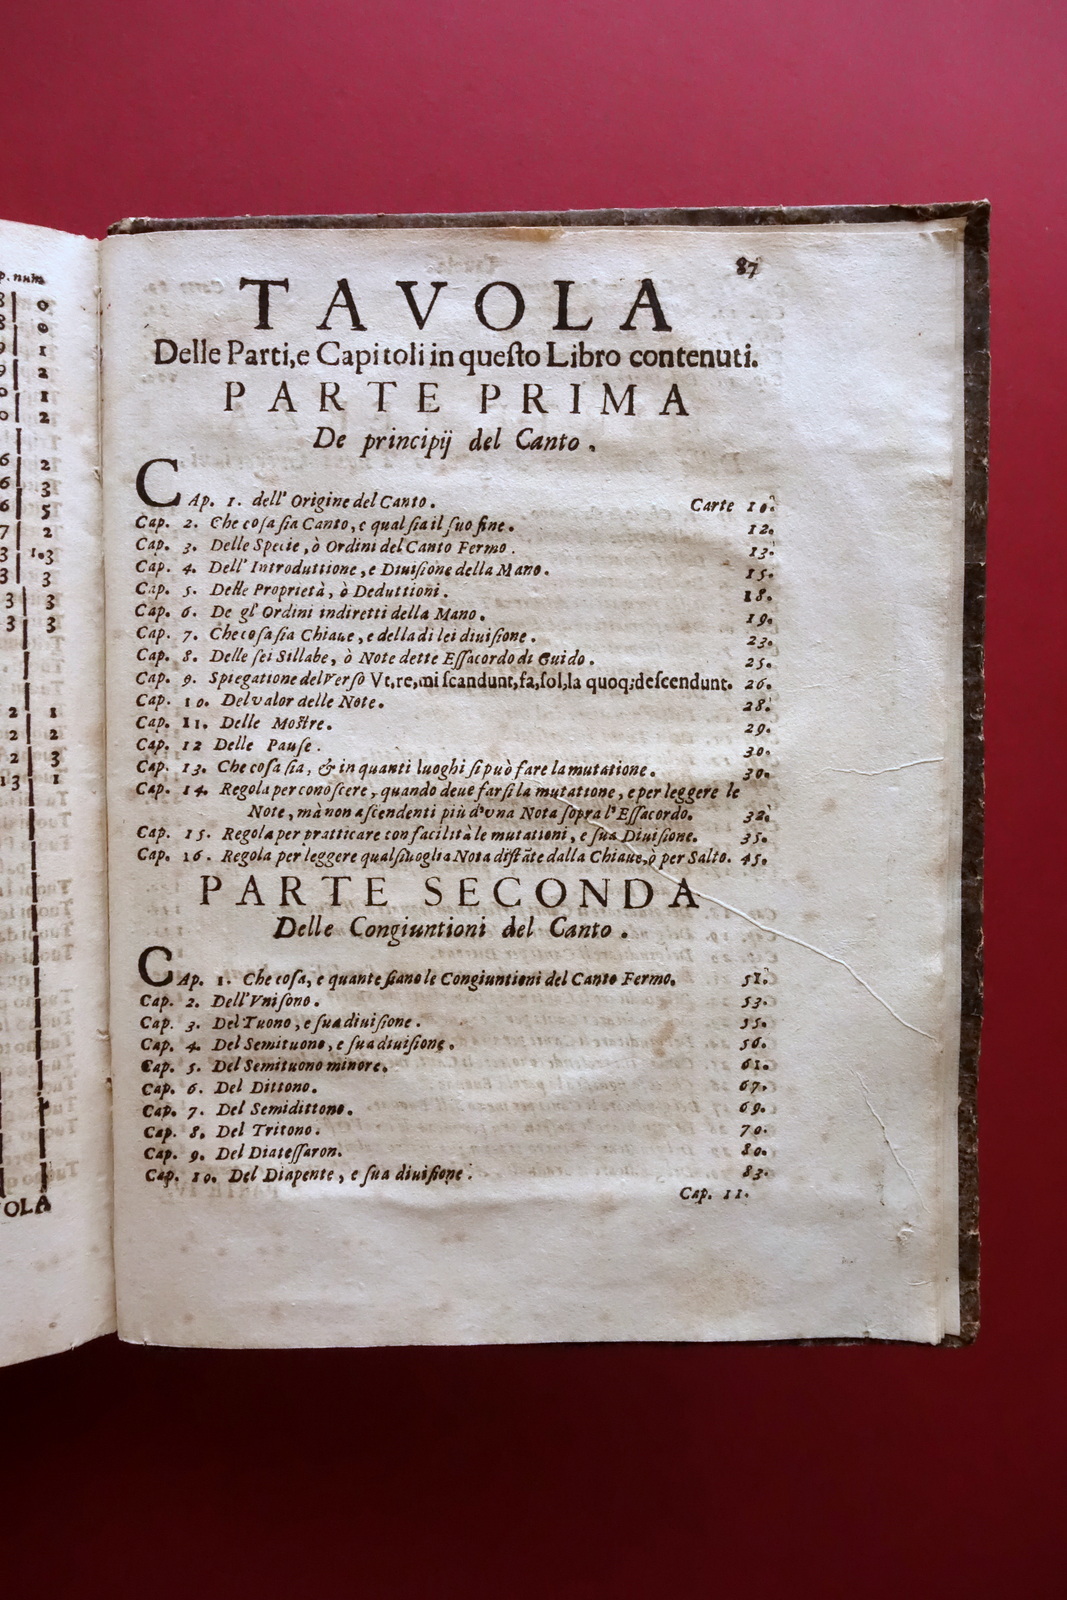 87
TAVOLA
Delle Parti, e Capitoli in queſto Libro contenuti.
PARTE PRIMA
De principij del Canto.
CAp. 1. dell' Origine del Canto. Carte 10.
Cap. 2. Che coſa ſia Canto, e qual ſia il ſuo fine. 12.
Cap. 3. Delle Specie, ò Ordini del Canto Fermo. 13.
Cap. 4. Dell' Introduttione, e Diuiſione della Mano. 15.
Cap. 5. Delle Proprietà, ò Deduttioni. 18.
Cap. 6. De gl' Ordini indiretti della Mano. 19.
Cap. 7. Che coſa ſia Chiaue, e della di lei diuiſione. 23.
Cap. 8. Delle ſei Sillabe, ò Note dette Eſſacordo di Guido. 25.
Cap. 9. Spiegatione del Verſo Vt, re, mi ſcandunt, fa, ſol, la quoq; deſcendunt. 26.
Cap. 10. Del valor delle Note. 28.
Cap. 11. Delle Moſtre. 29.
Cap. 12 Delle Pauſe. 30.
Cap. 13. Che coſa ſia, & in quanti luoghi ſi può fare la mutatione. 30.
Cap. 14. Regola per conoſcere, quando deue farſi la mutatione, e per leggere le
Note, mà non aſcendenti più d'vna Nota ſopra l'Eſſacordo. 32.
Cap. 15. Regola per pratticare con facilità le mutationi, e ſua Diuiſione. 35.
Cap. 16. Regola per leggere qualſiuoglia Nota diſtãte dalla Chiaue, ò per Salto. 45.
PARTE SECONDA
Delle Congiuntioni del Canto.
CAp. 1. Che coſa, e quante ſiano le Congiuntioni del Canto Fermo. 51.
Cap. 2. Dell'Vniſono. 53.
Cap. 3. Del Tuono, e ſua diuiſione. 55.
Cap. 4. Del Semituono, e ſua diuiſione. 56.
Cap. 5. Del Semituono minore. 61.
Cap. 6. Del Dittono. 67.
Cap. 7. Del Semidittono. 69.
Cap. 8. Del Tritono. 70.
Cap. 9. Del Diateſſaron. 80.
Cap. 10. Del Diapente, e ſua diuiſione. 83.
Cap. 11.